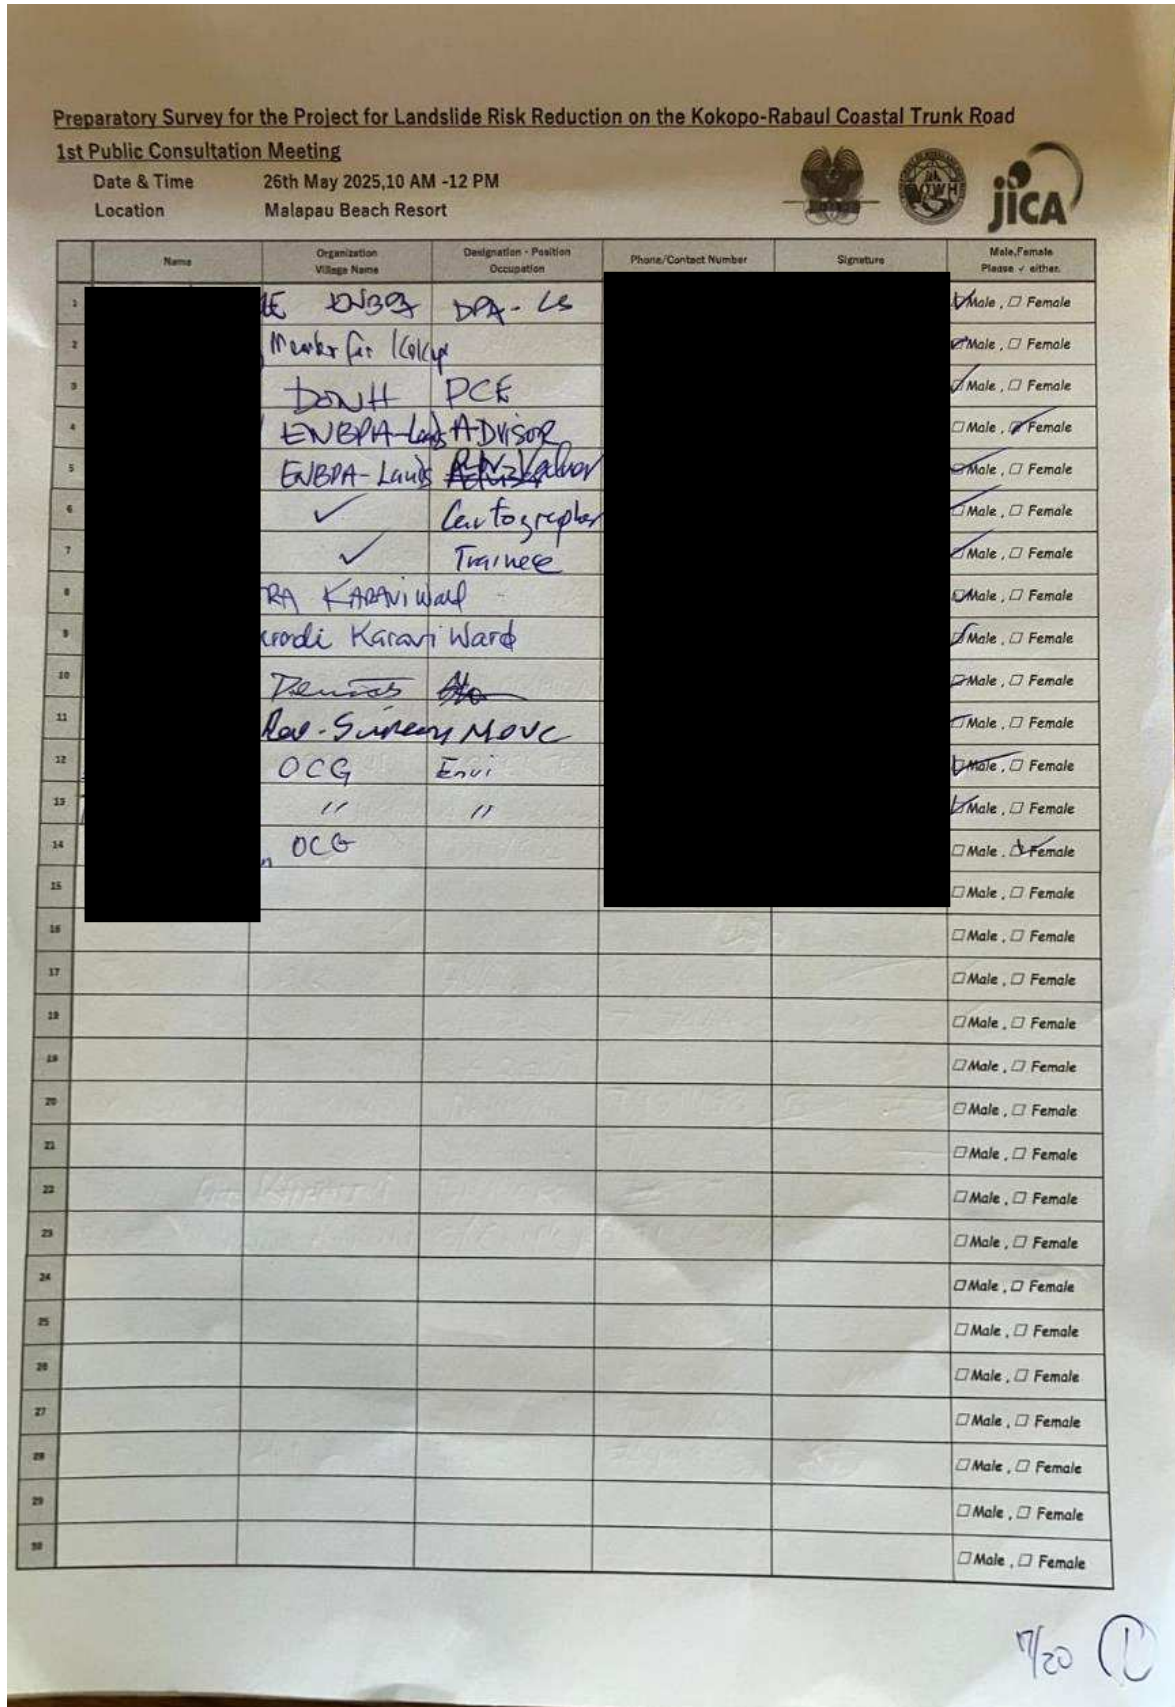 Preparatory Survey for the Project for Landslide Risk Reduction on the Kokopo-Rabaul Coastal Trunk Road
1st Public Consultation Meeting
Date & Time 26th May 2025,10 AM -12 PM
Location Malapau Beach Resort
JICA
Name Organization Village Name Designation - Position Occupation Phone/Contact Number Signature Male,Female Please ✓ either.
1 DPA - LS Male , Female
2 for Male , Female
3 PCE Male , Female
4 ENBPA-Lands ADVISOR Male , Female
5 ENBPA-Lands Male , Female
6 ✓ Cartographer Male , Female
7 ✓ Trainee Male , Female
8 RA KARAVI Ward Male , Female
9 Karavi Ward Male , Female
10 Male , Female
11 Male , Female
12 OCG Envi Male , Female
13 " " Male , Female
14 OCG Male , Female
15 Male , Female
16 Male , Female
17 Male , Female
18 Male , Female
19 Male , Female
20 Male , Female
21 Male , Female
22 Male , Female
23 Male , Female
24 Male , Female
25 Male , Female
26 Male , Female
27 Male , Female
28 Male , Female
29 Male , Female
30 Male , Female